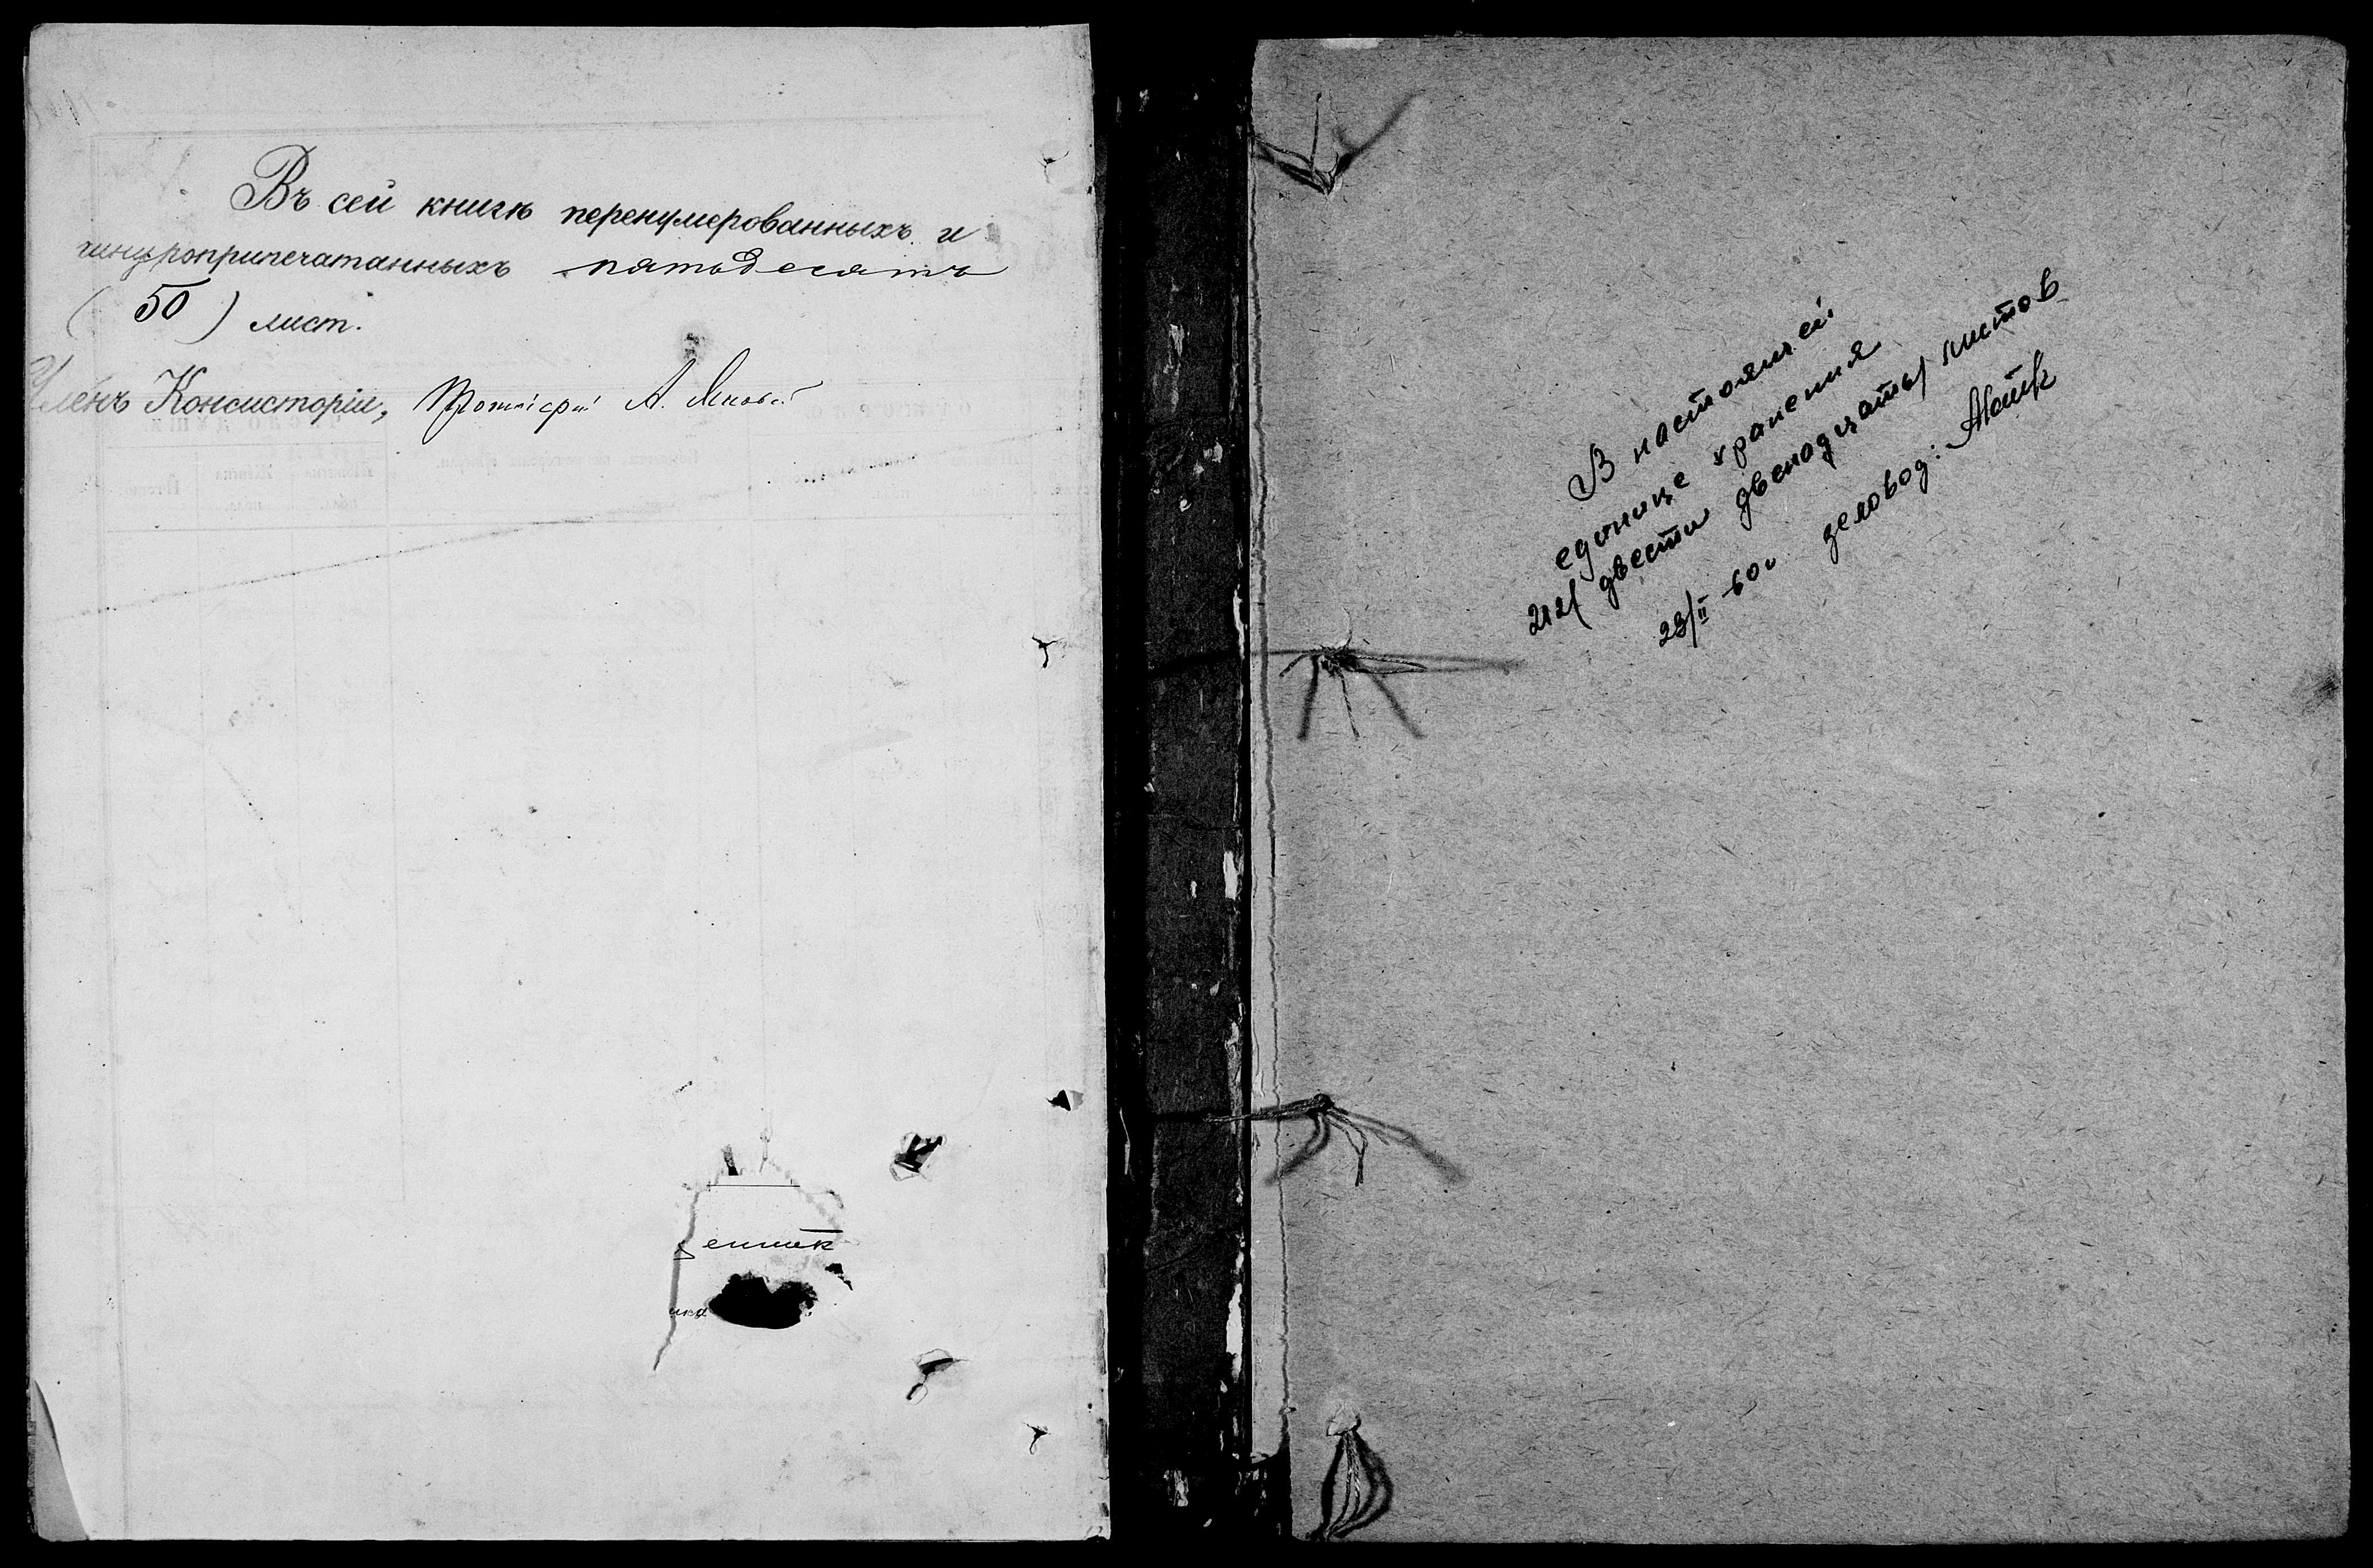 Въ сей книгѣ перенумерованныхъ и
шнуроприпечатанныхъ пятьдесятъ
( 50 ) лист.
Членъ Консисторіи, Протоіерей А.
В настоящей
единице хранения
212/ двести двенадцать/ листов
23/II 60г деловод: